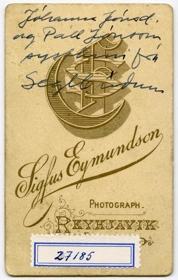 Jóhanna Jónsd.
og Páll Jónsson
systkini frá
Sigfús Eymundsson
PHOTOGRAPH.
REYKJAVIK
27185